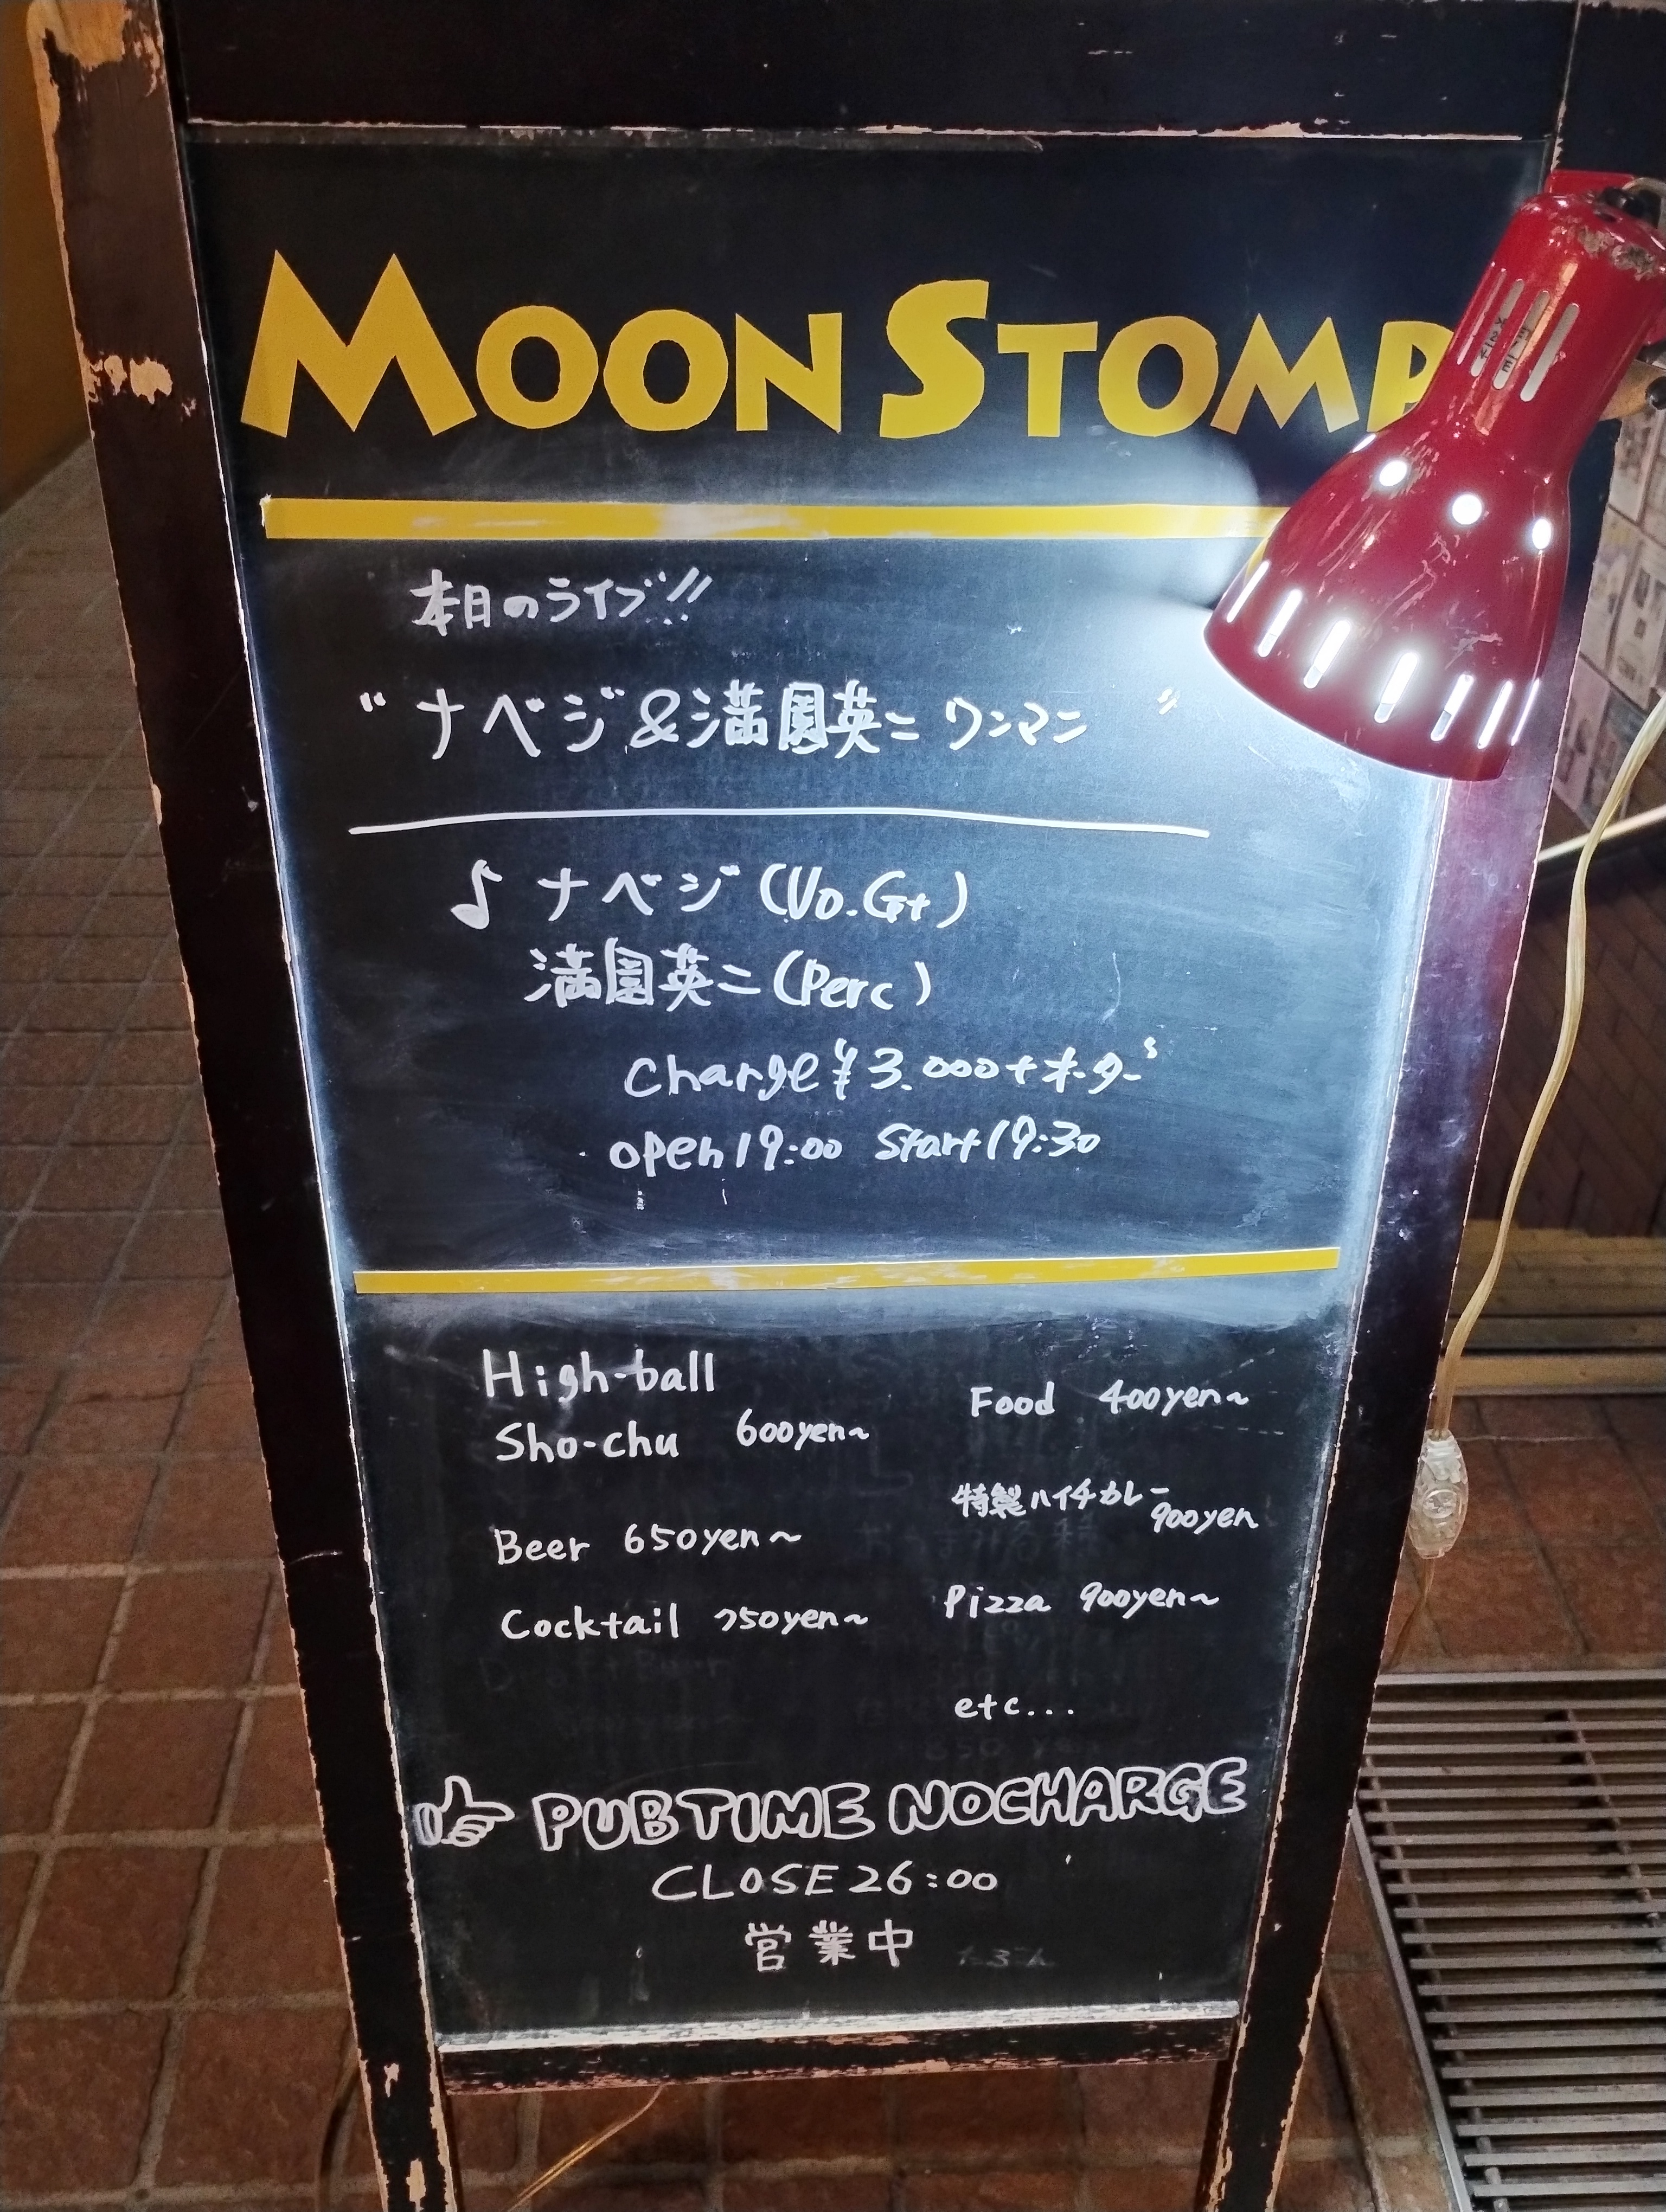 MOON STOMP
本日のライブ!!
"ナベジ&満園英二 ワンマン"
♪ ナベジ (Vo.Gt)
満園英二 (Perc)
charge ¥3.000+オーダー
open 19:00 Start 19:30
High-ball
Sho-chu 600yen~
Beer 650yen~
Cocktail 750yen~
Food 400yen~
特製ハイチカレー
900yen
Pizza 900yen~
etc...
PUBTIME NOCHARGE
CLOSE 26:00
営業中